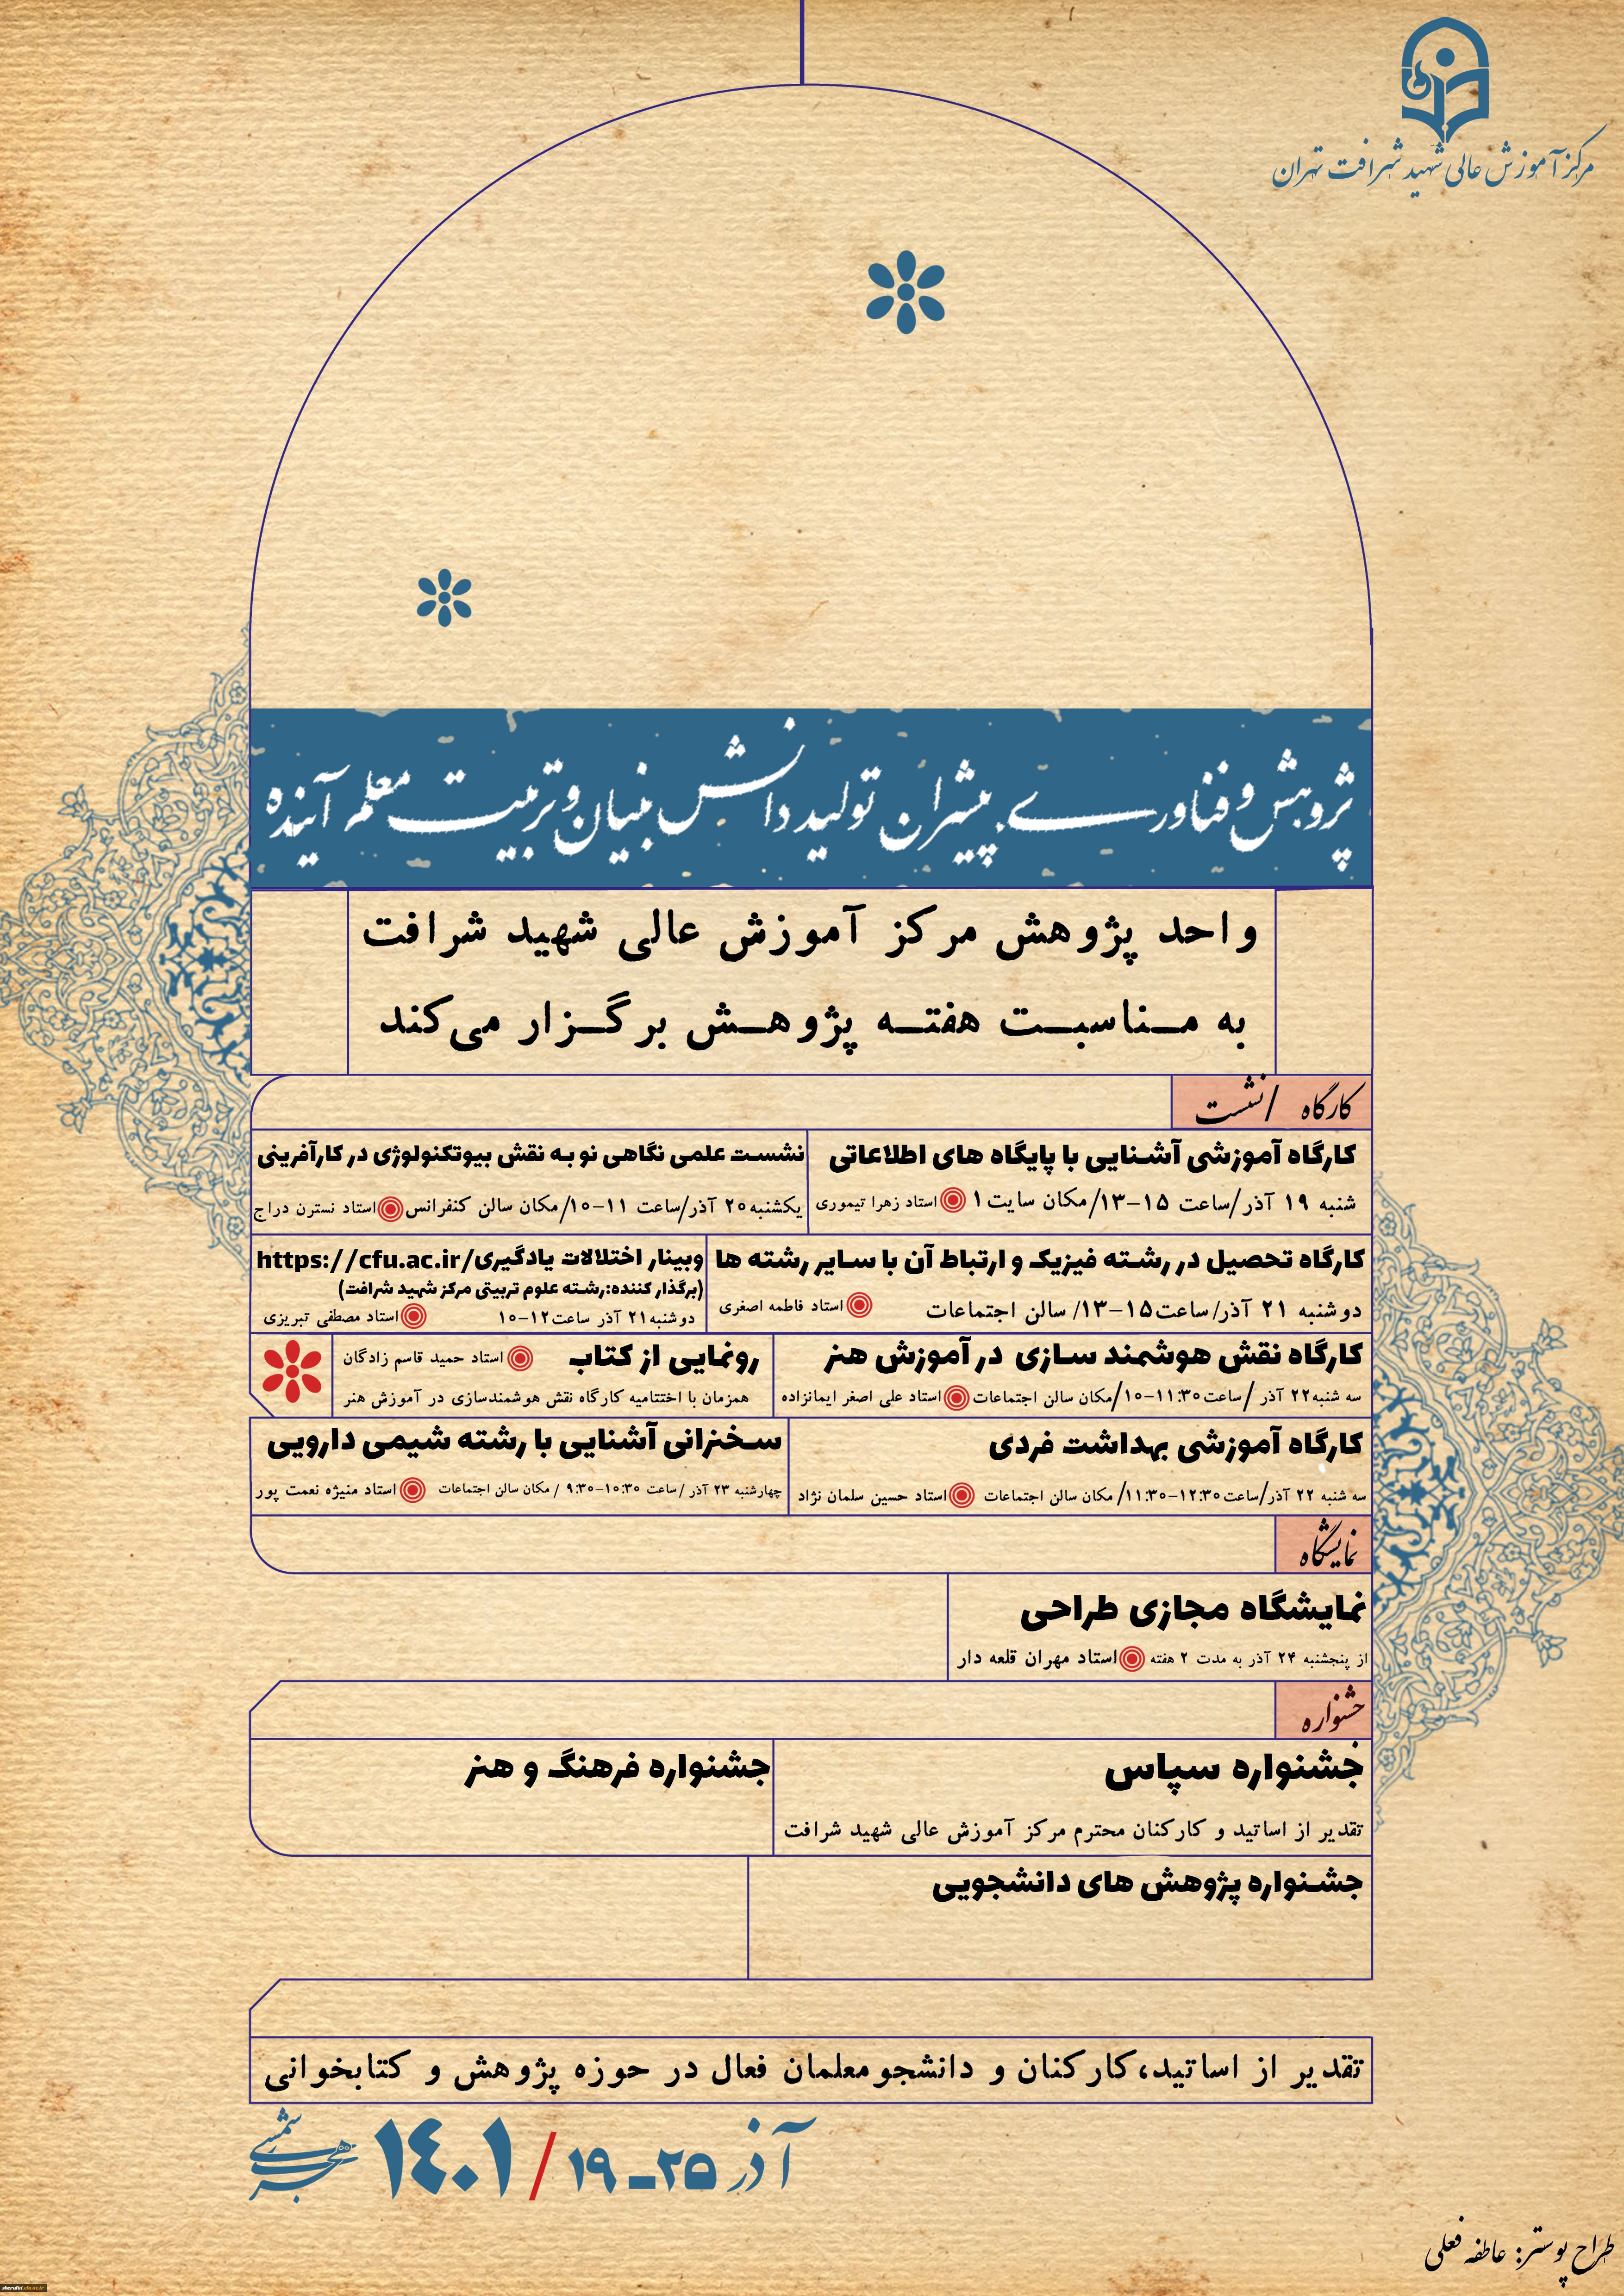 مرکز آموزش عالی شهید شرافت تهران
پژوهش و فناوری پیشران تولید دانش بنیان و تربیت معلم آینده
واحد پژوهش مرکز آموزش عالی شهید شرافت
به مناسبت هفته پژوهش برگزار می‌کند
کارگاه / نشست
کارگاه آموزشی آشنایی با پایگاه های اطلاعاتی
شنبه ۱۹ آذر/ساعت ۱۵-۱۳/مکان سایت ۱ استاد زهرا تیموری
نشست علمی نگاهی نو به نقش بیوتکنولوژی در کارآفرینی
یکشنبه۲۰ آذر/ساعت ۱۱-۱۰/مکان سالن کنفرانس استاد نسترن دراج
کارگاه تحصیل در رشته فیزیک و ارتباط آن با سایر رشته ها
دوشنبه ۲۱ آذر/ساعت۱۵-۱۳/ سالن اجتماعات استاد فاطمه اصغری
وبینار اختلالات یادگیری/https://cfu.ac.ir
(برگذار کننده:رشته علوم تربیتی مرکز شهید شرافت)
دوشنبه۲۱ آذر ساعت۱۲-۱۰ استاد مصطفی تبریزی
کارگاه نقش هوشمند سازی در آموزش هنر
سه شنبه۲۲ آذر /ساعت۱۱:۳۰-۱۰/مکان سالن اجتماعات استاد علی اصغر ایمانزاده
رونمایی از کتاب استاد حمید قاسم زادگان
همزمان با اختتامیه کارگاه نقش هوشمندسازی در آموزش هنر
کارگاه آموزشی بهداشت فردی
سه شنبه ۲۲ آذر/ساعت۱۲:۳۰-۱۱:۳۰/ مکان سالن اجتماعات استاد حسین سلمان نژاد
سخنرانی آشنایی با رشته شیمی دارویی
چهارشنبه ۲۳ آذر /ساعت ۱۰:۳۰-۹:۳۰ / مکان سالن اجتماعات استاد منیژه نعمت پور
نمایشگاه
نمایشگاه مجازی طراحی
از پنجشنبه ۲۴ آذر به مدت ۲ هفته استاد مهران قلعه دار
جشنواره
جشنواره سپاس
تقدیر از اساتید و کارکنان محترم مرکز آموزش عالی شهید شرافت
جشنواره فرهنگ و هنر
جشنواره پژوهش های دانشجویی
تقدیر از اساتید،کارکنان و دانشجومعلمان فعال در حوزه پژوهش و کتابخوانی
آذر ۲۵-۱۹ / ۱۴۰۱ هجری شمسی
طراح پوستر: عاطفه فعلی